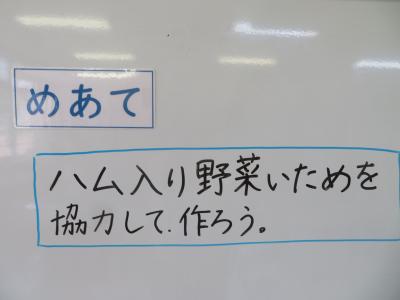 めあて
ハム入り野菜いためを
協力して、作ろう。